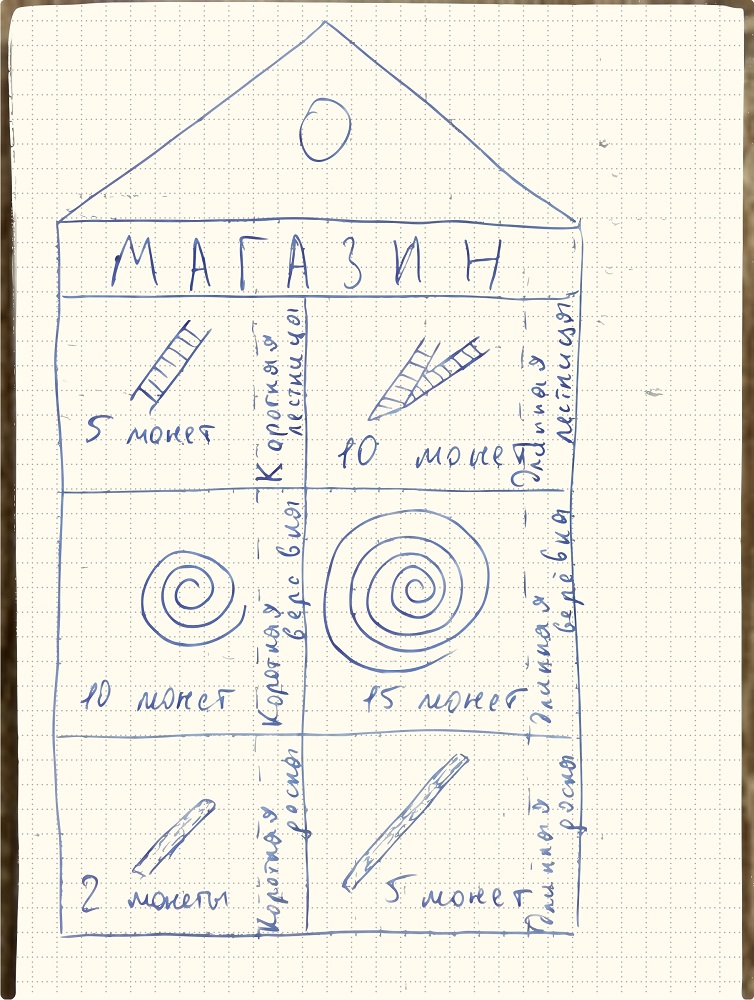 МАГАЗИН
5 монет
Короткая
лестница
10 монет
Длинная
лестница
10 монет
Короткая
верёвка
15 монет
Длинная
верёвка
2 монеты
Короткая
доска
5 монет
Длинная
доска